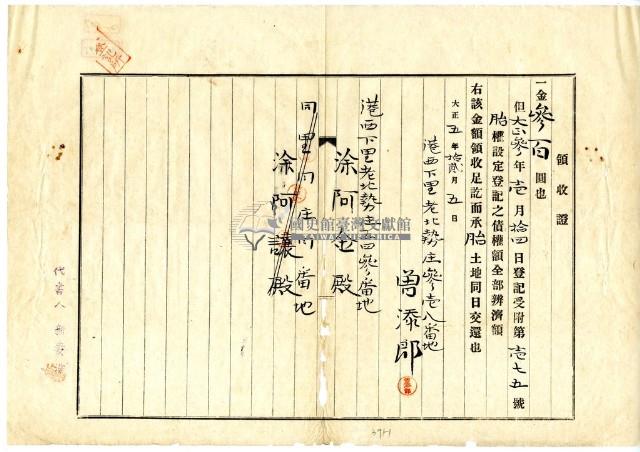 領收證
一金參百圓也
但大正參年壹月拾四日登記受附第壹七五號
胎權設定登記之債權額全部辨濟額
右該金額領收足訖而承胎土地同日交還也
大正五年拾貳月五日
港西下里老北勢庄參壱八番地
曾添郎
港西下里老北勢庄四參番地
涂阿 殿
同里同庄同番地
涂阿讓殿
代書人
國史館臺灣文獻館
TAIWAN HISTORICA